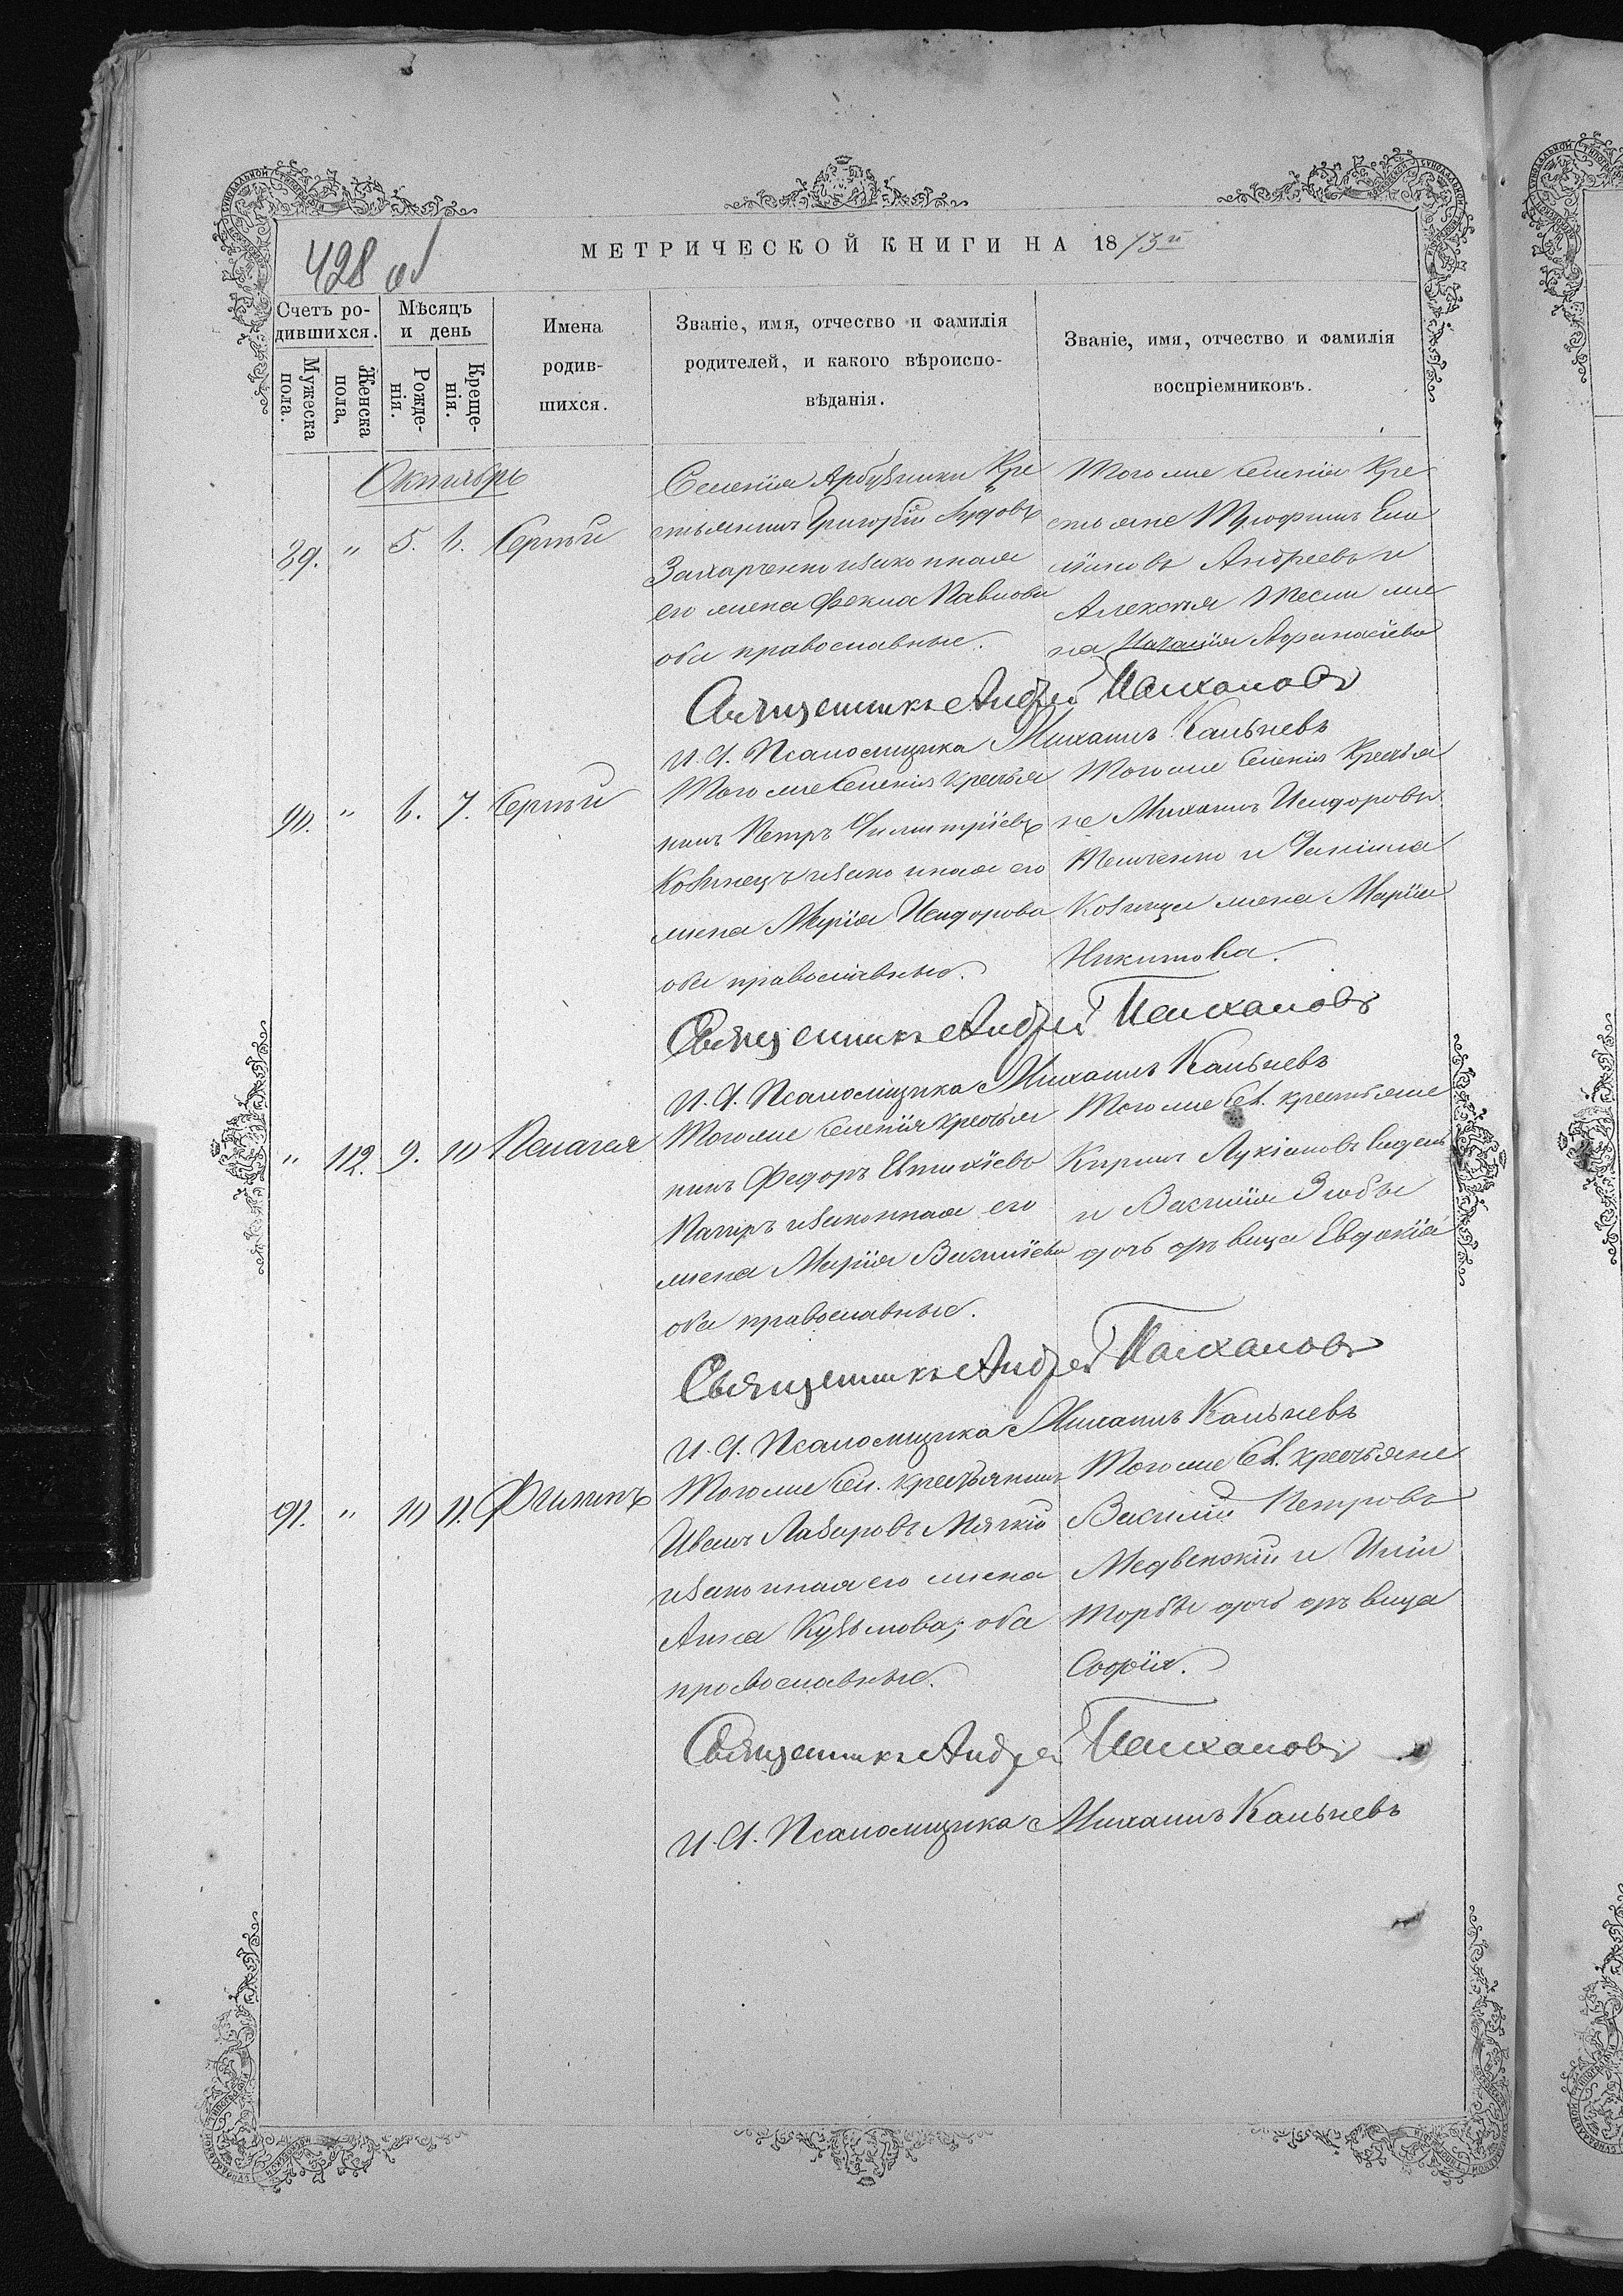 428 об
МЕТРИЧЕСКОЙ КНИГИ НА 1873й
Счетъ ро-
дившихся.
Мужеска
пола.
Женска
пола,
Мѣсяцъ
и день
Рожде-
нія.
Креще-
нія.
Имена
родив-
шихся.
Званіе, имя, отчество и фамилія
родителей, и какого вѣроиспо-
вѣданія.
Званіе, имя, отчество и фамилія
воспріемниковъ.
Октябрь
89. " 5. 6. Сергѣй
Селенія Арбузинки Кре
стьянинъ Григорій
Захарченко и законная
его жена Фекла Павлова
оба православные.
Того же селенія Кре
стьяне Трофимъ Еми
ліяновъ Андреевъ и
Алексѣя же
на Наталія Афанасіева
Священникъ Андрей
И. д. Псаломщика Михаилъ Кальневъ
90. " 6. 7. Сергѣй
Того же Селенія крестья
нинъ Петръ Димитріевъ
Ковинецъ и законная его
жена Марія Исидорова
оба православные.
Того же Селенія Крестья
не Михаилъ Исидоровъ
и Даніила
Ковинца жена Марія
Никитова.
Священникъ Андрей
И. д. Псаломщика Михаилъ Кальневъ
" 112. 9. 10 Пелагея
Того же Селенія крестья
нинъ Федоръ Евтихіевъ
и законная его
жена Марія Василіева
оба православные.
Того же Сел. крестьяне
Кирилъ Лукіановъ
и Василія Зюбы
дочь дѣвица Евдокія
Священникъ Андрей
И. д. Псаломщика Михаилъ Кальневъ
91. " 10 11. Филипъ
Того же Сел. крестьянинъ
Иванъ Лазаровъ Мягкій
и законная его жена
Анна Кузьмова; оба
православные.
Того же Сел. крестьяне
Василій Петровъ
и Иліи
Торбы дочь дѣвица
Софія.
Священникъ Андрей
И. д. Псаломщика Михаилъ Кальневъ